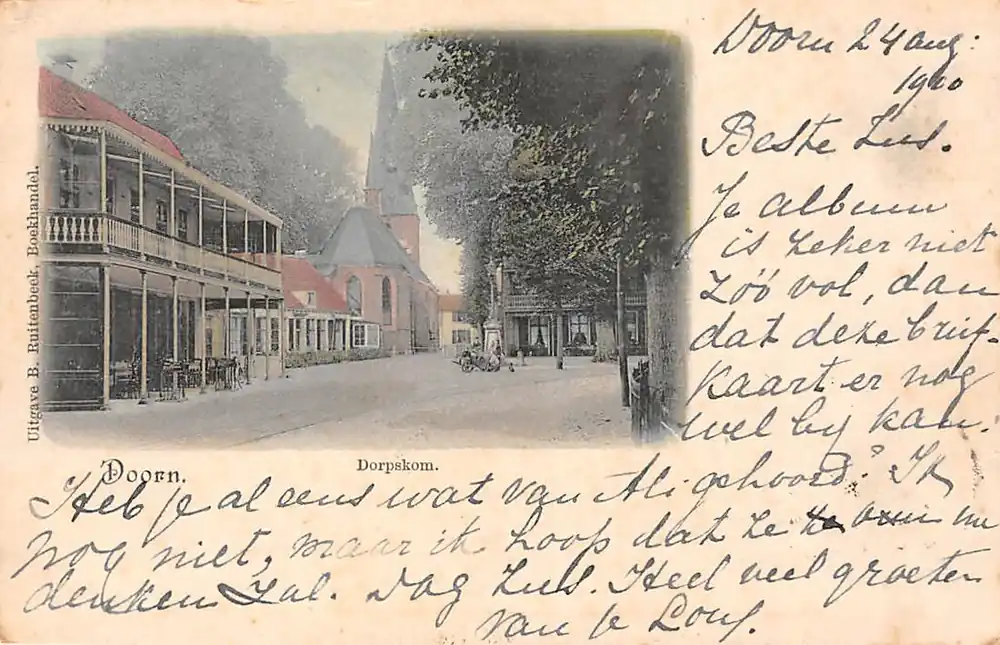 Doorn 24 aug:
1900
Beste Zus.
Je album
is zeker niet
zóó vol, dan
dat deze brief-
kaart er nog
wel bij kan.
Uitgave B. Ruitenbeek, Boekhandel.
Doorn.
Dorpskom.
Heb je al eens wat van Ali gehoord? Ik
nog niet, maar ik hoop dat ze me
denken zal. Dag Zus. Heel veel groeten
van je